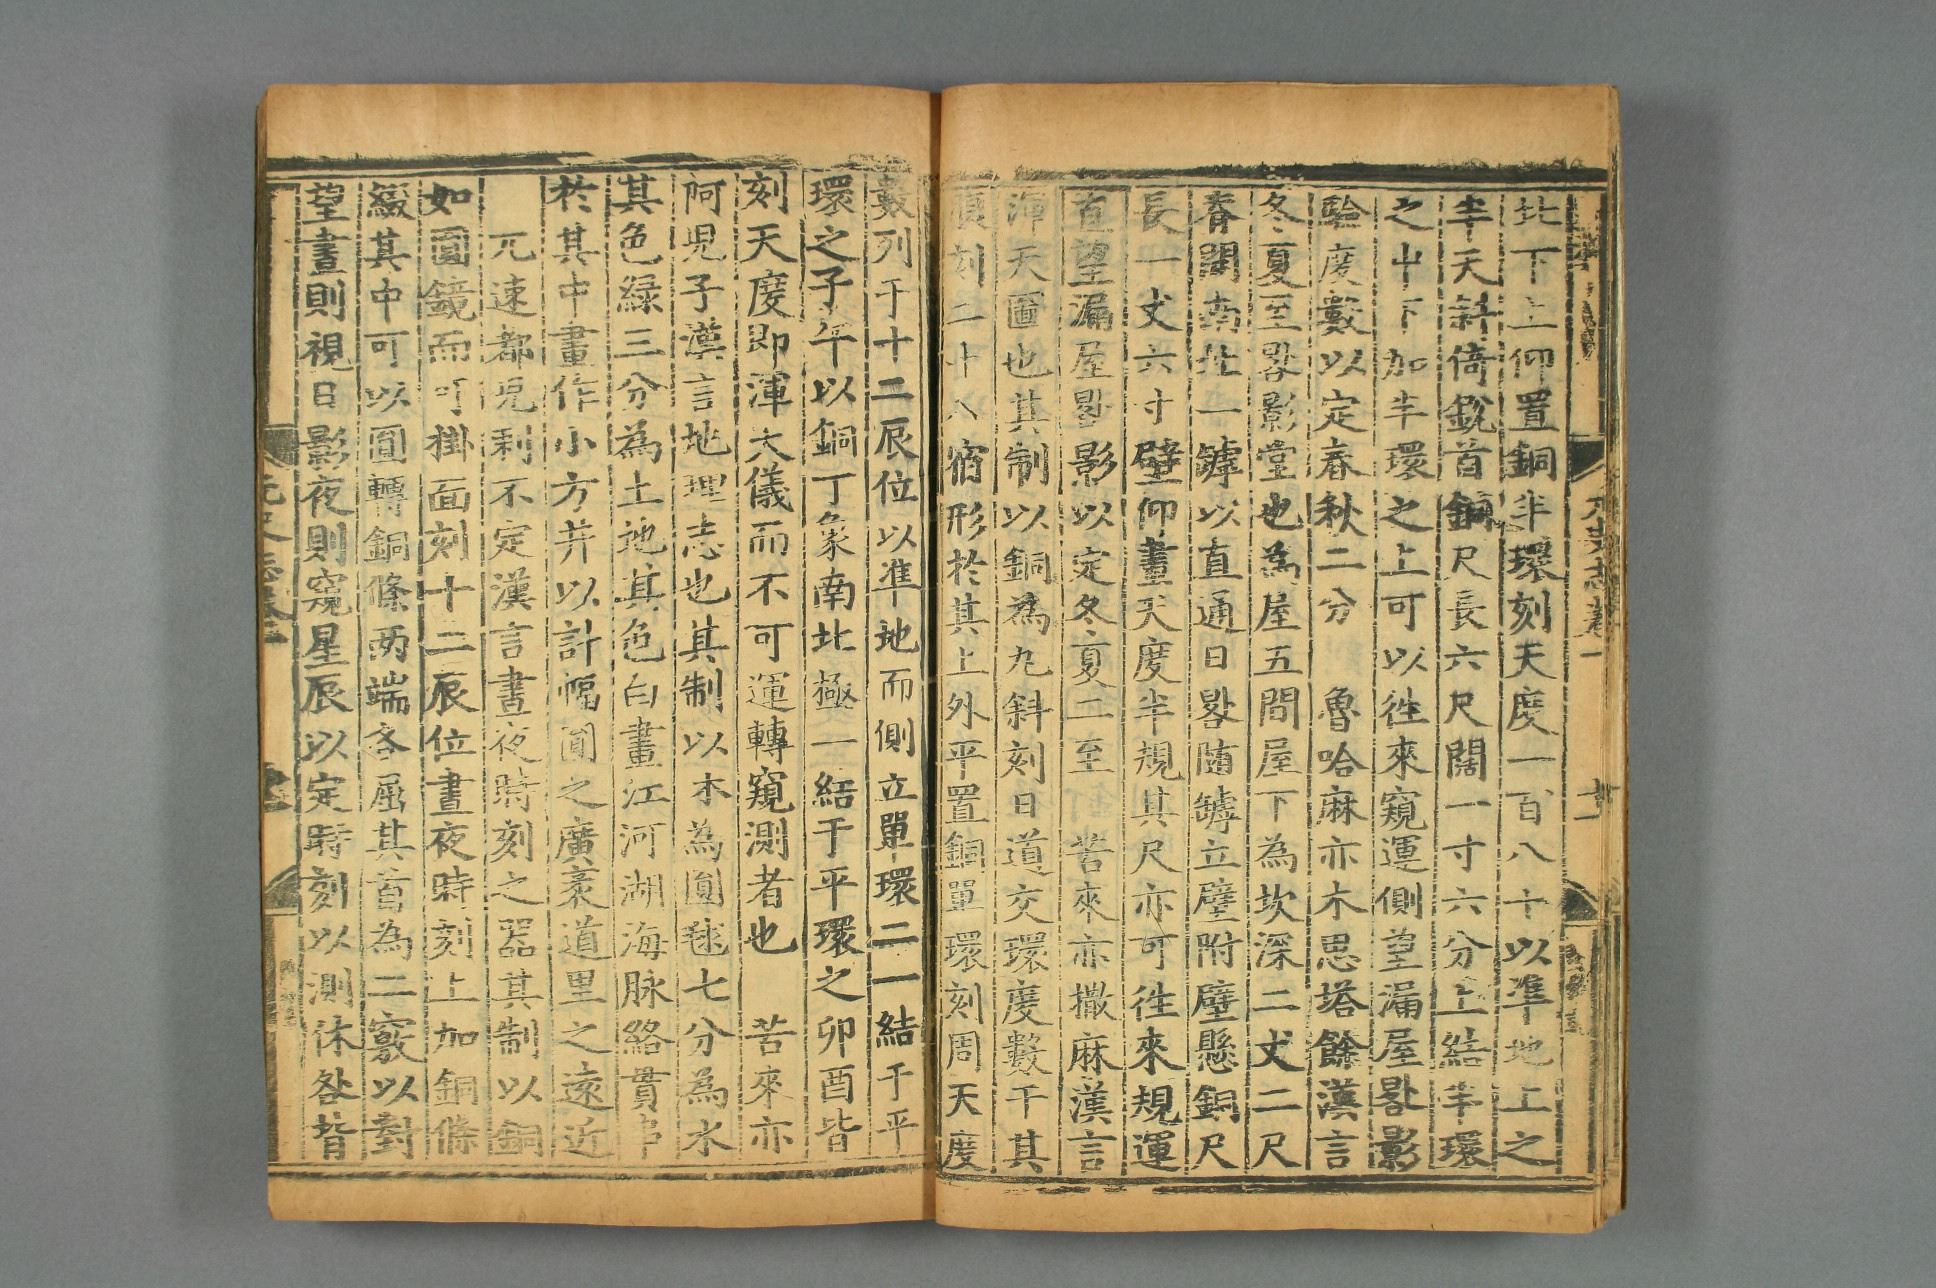 北下上仰置銅半環刻天度一百八十以準地上之
半天斜倚銳首銅尺長六尺闊一寸六分上結半環
之中下加半環之上可以徃來窺運側望漏屋晷影
驗度數以定春秋二分　魯哈麻亦木思塔餘漢言
冬夏至晷影堂也為屋五間屋下為坎深二丈二尺
脊開南北一罅以直通日晷随罅立壁附壁懸銅尺
長一丈六寸壁仰畫天度半規其尺亦可徃來規運
直望漏屋晷影以定冬夏二至　苦來亦撒麻漢言
渾天圖也其制以銅為丸斜刻日道交環度數于其
腹刻二十八宿形於其上外平置銅單環刻周天度
數列于十二辰位以準地而側立單環二一結于平
環之子午以銅丁象南北極一結于平環之卯酉皆
刻天度即渾天儀而不可運轉窺測者也　苦來亦
阿児子漢言地理志也其制以木為圓毬七分為水
其色綠三分為土地其色白畫江河湖海脉絡貫串
於其中畫作小方井以計幅圓之廣袤道里之遠近
兀速都兒剌不定漢言晝夜時刻之器其制以銅
如圓鏡而可掛面刻十二辰位晝夜時刻上加銅條
綴其中可以圓轉銅條兩端各屈其首為二竅以對
望晝則視日影夜則窺星辰以定時刻以測休咎背